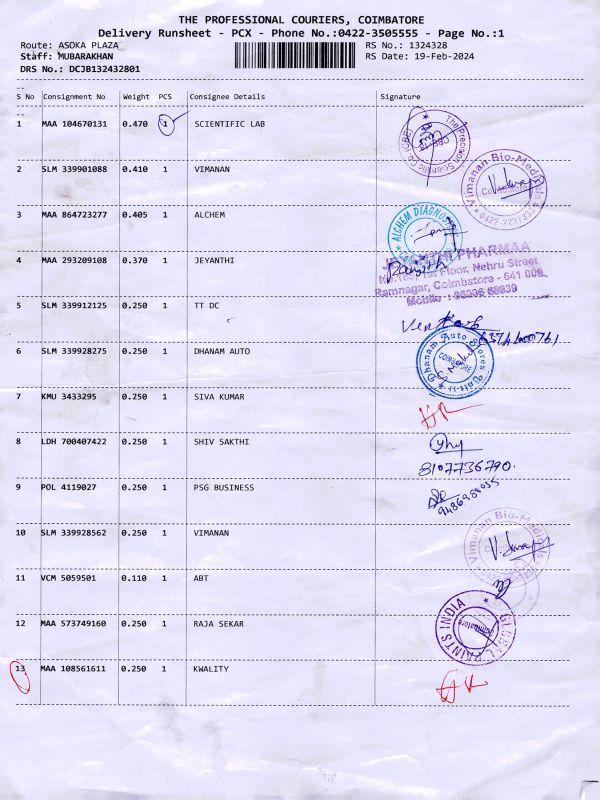 THE PROFESSIONAL COURIERS, COIMBATORE
Delivery Runsheet - PCX - Phone No.:0422-3505555 - Page No.:1
Route: ASOKA PLAZA RS No.: 1324328
Staff: MUBARAKHAN RS Date: 19-Feb-2024
DRS No.: DCJB132432801
S No Consignment No Weight PCS Consignee Details Signature
1 MAA 104670131 0.470 1 SCIENTIFIC LAB
2 SLM 339901088 0.410 1 VIMANAN
Vimanan Bio-Medicals
3 MAA 864723277 0.405 1 ALCHEM
ALCHEM DIAGNOSTIC
4 MAA 293209108 0.370 1 JEYANTHI
PHARMAA
Floor, Nehru Street
Ramnagar, Coimbatore - 641 009.
Mobile :
5 SLM 339912125 0.250 1 TT DC
6 SLM 339928275 0.250 1 DHANAM AUTO
Dhanam Auto Stores
COIMBATORE
7 KMU 3433295 0.250 1 SIVA KUMAR
8 LDH 700407422 0.250 1 SHIV SAKTHI
8107736790
9 POL 4119027 0.250 1 PSG BUSINESS
10 SLM 339928562 0.250 1 VIMANAN
Vimanan Bio-Medicals
11 VCM 5059501 0.110 1 ABT
12 MAA 573749160 0.250 1 RAJA SEKAR
GLOBAL PAINTS INDIA
Coimbatore
13 MAA 108561611 0.250 1 KWALITY